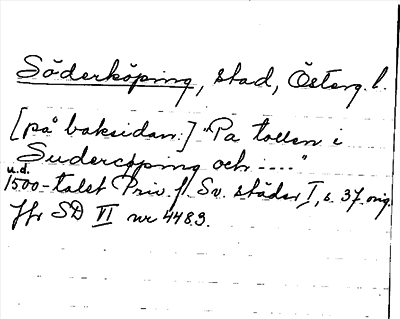 Söderköping, stad, Österg. l.
[på baksidan:] "Pa tollen i
Sudercöping och ...."
u.d.
1500-talet Priv. f. Sv. städer I, s. 37. orig.
Jfr SD VI nr 4483.